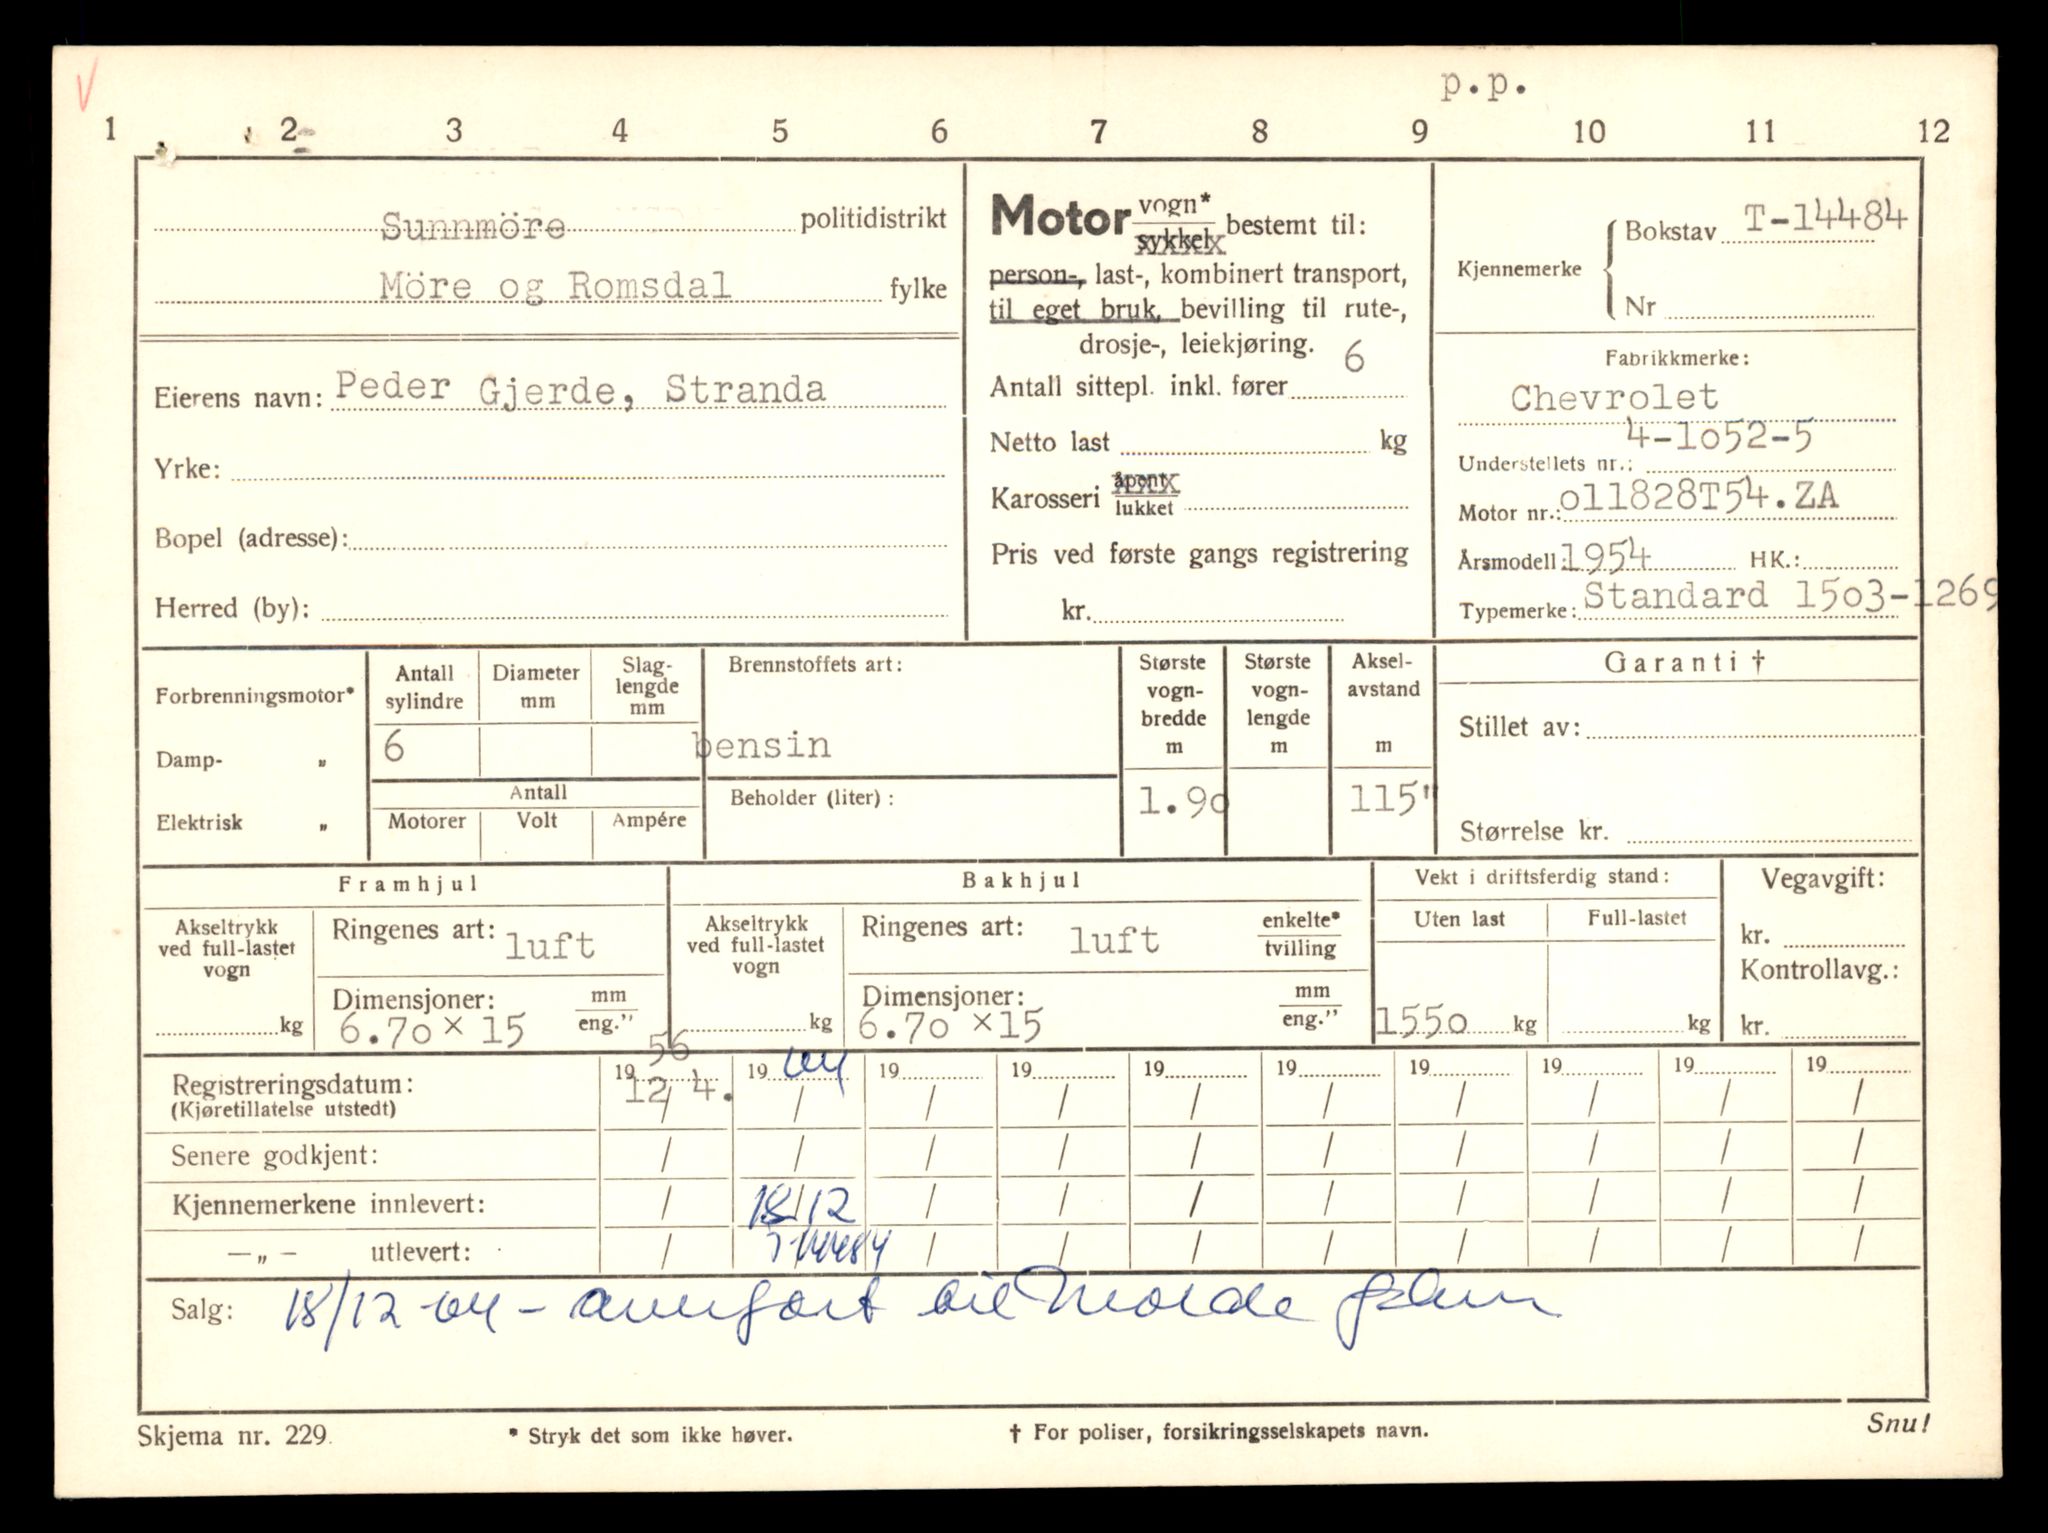 p.p.
1 2 3 4 5 6 7 8 9 10 11 12
Sunnmöre politidistrikt
Möre og Romsdal fylke
Eierens navn: Peder Gjerde, Stranda
Yrke:
Bopel (adresse):
Herred (by):
Motor vogn* sykkel bestemt til:
person-, last-, kombinert transport,
til eget bruk, bevilling til rute-,
drosje-, leiekjøring.
Antall sittepl. inkl. fører 6
Netto last kg
Karosseri åpent lukket
Pris ved første gangs registrering
kr.
Kjennemerke Bokstav T-14484
Nr
Fabrikkmerke:
Chevrolet
Understellets nr.: 4-1o52-5
Motor nr.: o11828T54.ZA
Årsmodell: 1954 HK.:
Typemerke: Standard 15o3-1269
Forbrenningsmotor*
Damp- „
Elektrisk „
Antall sylindre
6
Diameter mm
Slag-
lengde
mm
Antall
Motorer Volt Ampére
Brennstoffets art:
bensin
Beholder (liter) :
Største
vogn-
bredde
m
1.9o
Største
vogn-
lengde
m
Aksel-
avstand
m
115"
Garanti †
Stillet av:
Størrelse kr.
Framhjul
Akseltrykk
ved full-lastet
vogn
kg
Ringenes art: luft
Dimensjoner: mm eng.”
6.7o x 15
Bakhjul
Akseltrykk
ved full-lastet
vogn
kg
Ringenes art: luft enkelte* tvilling
Dimensjoner: mm eng.”
6.7o x15
Vekt i driftsferdig stand:
Uten last Full-lastet
155o kg kg
Vegavgift:
kr.
Kontrollavg.:
kr.
Registreringsdatum: 19 56 19 64 19 19 19 19 19 19 19 19
(Kjøretillatelse utstedt) 12/4. / / / / / / / / /
Senere godkjent: / / / / / / / / / /
Kjennemerkene innlevert: / 18/12 / / / / / / / /
—„— utlevert: / T-14484 / / / / / / / /
Salg: 18/12-64 - overført til Molde
Skjema nr. 229.
* Stryk det som ikke høver.
† For poliser, forsikringsselskapets navn.
Snu!